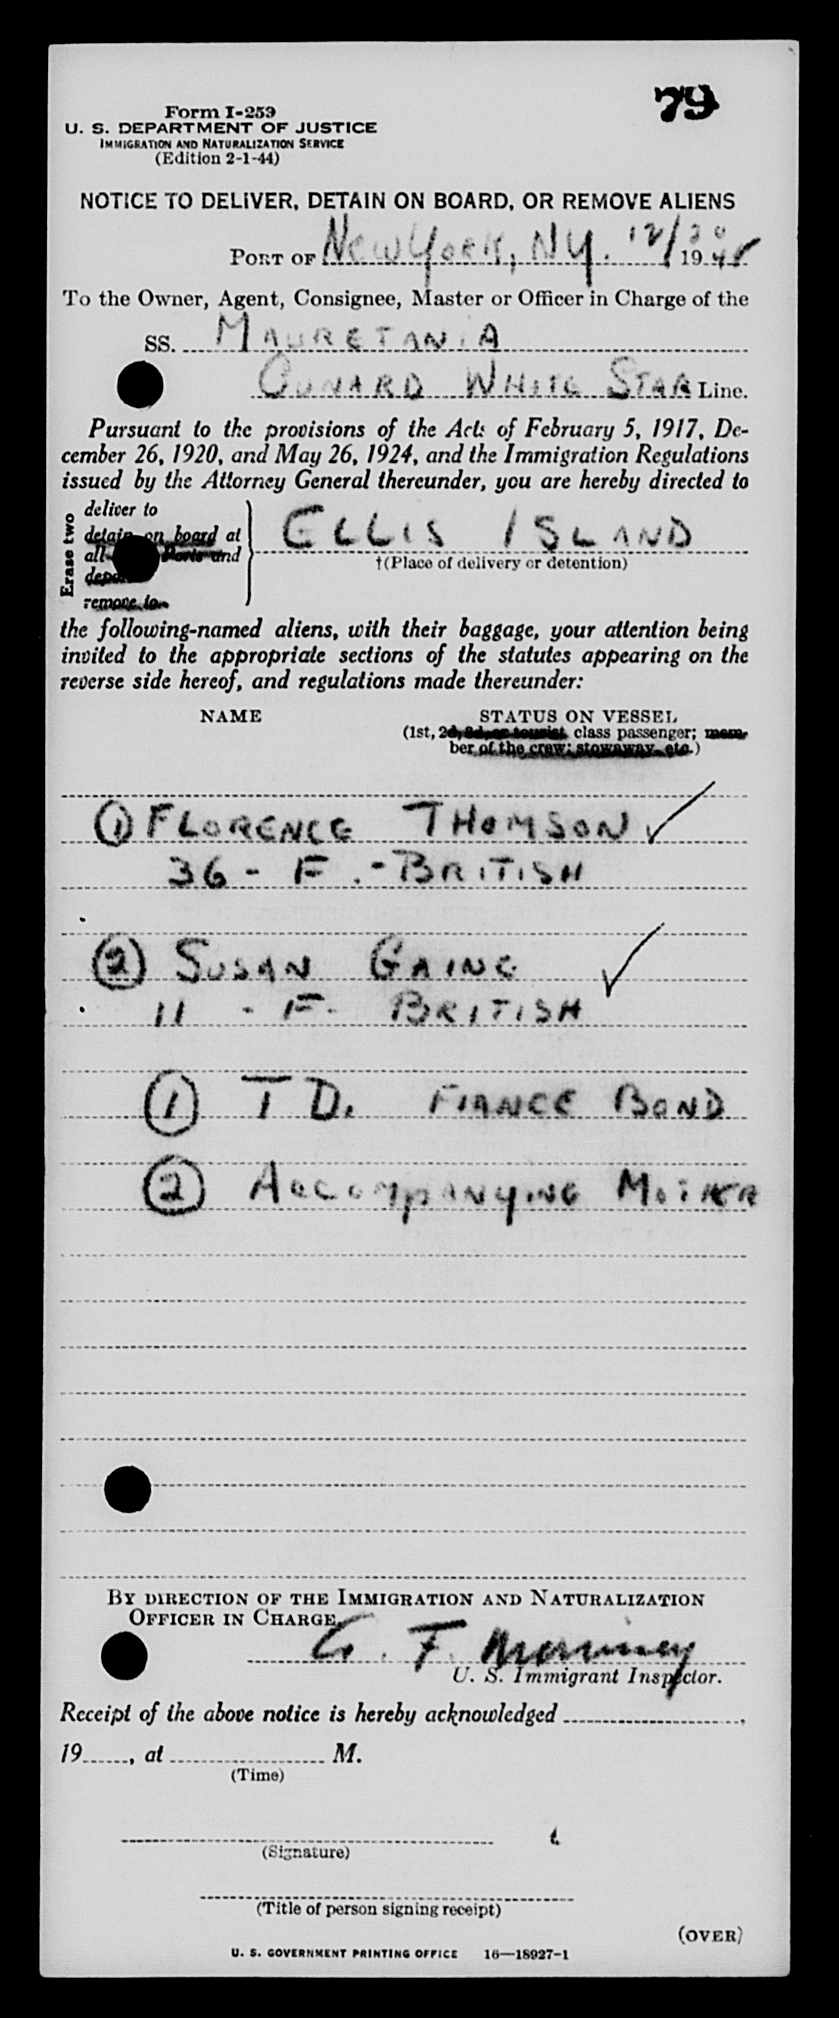 79
Form I-259
U. S. DEPARTMENT OF JUSTICE
IMMIGRATION AND NATURALIZATION SERVICE
(Edition 2-1-44)
NOTICE TO DELIVER, DETAIN ON BOARD, OR REMOVE ALIENS
PORT OF NEW YORK, NY. 12/20 1948
To the Owner, Agent, Consignee, Master or Officer in Charge of the
SS. MAURETANIA
CUNARD WHITE STAR Line.
Pursuant to the provisions of the Acts of February 5, 1917, De-
cember 26, 1920, and May 26, 1924, and the Immigration Regulations
issued by the Attorney General thereunder, you are hereby directed to
Erase two
deliver to
detain on board at
all Ports and
remove to
ELLIS ISLAND
†(Place of delivery or detention)
the following-named aliens, with their baggage, your attention being
invited to the appropriate sections of the statutes appearing on the
reverse side hereof, and regulations made thereunder:
NAME STATUS ON VESSEL
(1st, 2d, 3d, or tourist class passenger; mem-
ber of the crew; stowaway, etc.)
① FLORENCE THOMSON ✓
36 - F. - BRITISH
② SUSAN GAING ✓
11 - F. BRITISH
① T D. FIANCE BOND
② ACCOMPANYING MOTHER
BY DIRECTION OF THE IMMIGRATION AND NATURALIZATION
OFFICER IN CHARGE.
G. F.
U. S. Immigrant Inspector.
Receipt of the above notice is hereby acknowledged ,
19 , at M.
(Time)
(Signature)
(Title of person signing receipt)
(OVER)
U. S. GOVERNMENT PRINTING OFFICE 16—18927-1